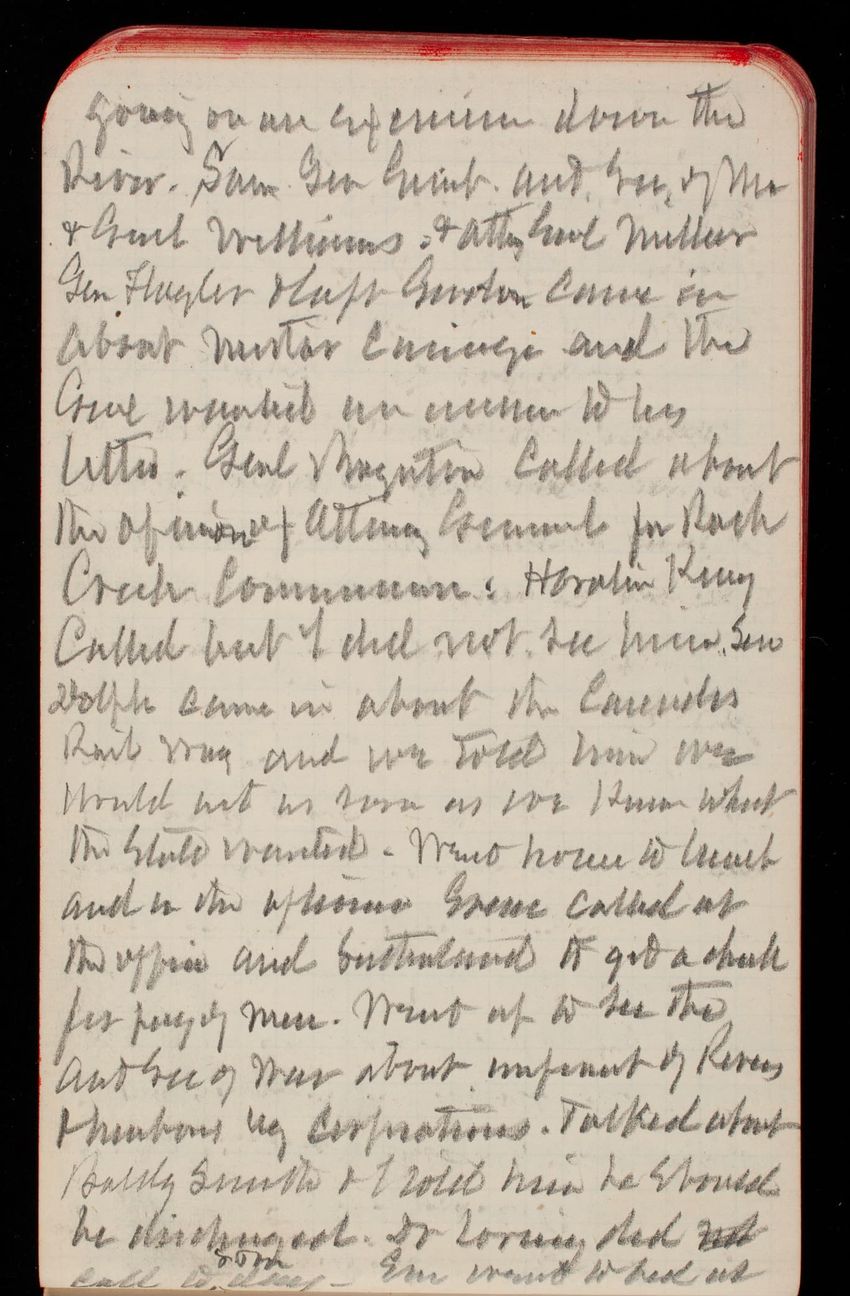 going on an excursion down the
River. Saw Gen Grant. and Sec, of
& Genl Williams. & Atty Genl Miller
Gen Flagler & Capt Gordon came in
about Mortar Carriage and the
Genl wanted an answer to his
letter. Genl Boynton called about
the opinion of Attorney General for Rock
Creek Commission. Horatio King
Called but I did not see him. Sen
Dolph came in about the Cascades
Rail Way and we told him we
would act as soon as we knew what
the State wanted. Went home to lunch
and in the afternoon Greene called at
the office and Sutherland to get a check
for pay of men. Went up to see the
Asst Sec of War about improvemt of Rivers
& harbors by Corporations. Talked about
Baldy Smith & I told him he should
be discharged. Dr Loring did not
call to day - Em went to bed at
soon